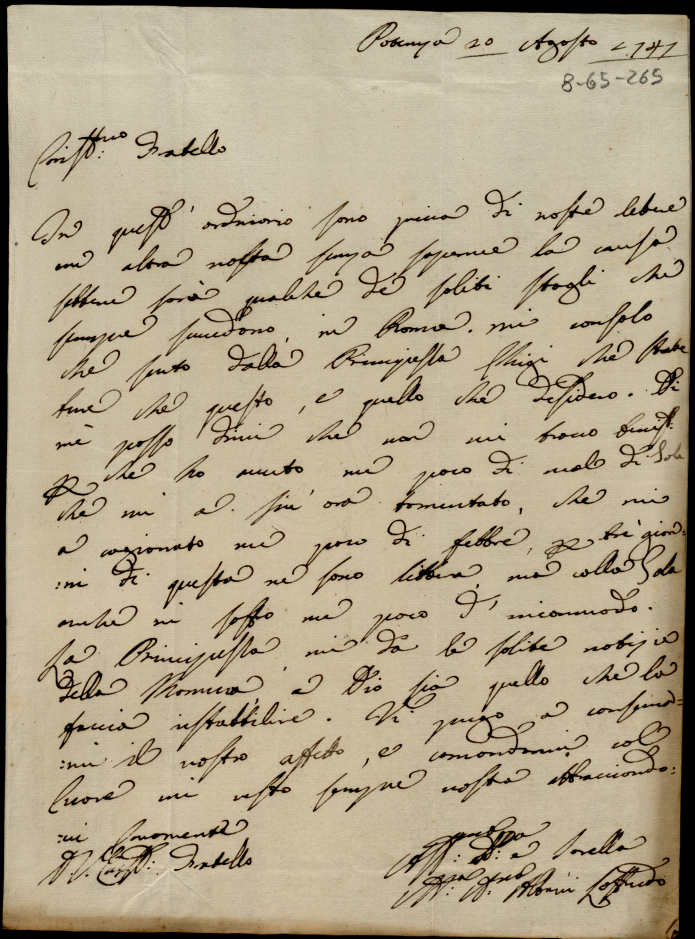 Potenza 20 Agosto 1747
8-65-265
Cariss:mo Fratello
In quest' ordinario sono priva di vostre lettere
un altra volta senza saperne la causa
sebene sarà qualche de soliti sbagli che
sempre succedono, in Roma. mi consolo
che sento dalla Principessa Ghigi che state
bene che questo, e quello che desidero. Di
me posso dirvi che non mi trovo
che ho avuto un poco di male di Gola
che mi a sin' ora tormentato, che mi
a cagionato un poco di febbre, p tre gior=
:ni di questa ne sono libbera, ma colla Gola
anche ni soffro un poco d' incommodo.
La Principessa, mi da le solite notizie
della, a Dio sia quello che la
faccia ristabbilire. Vi prego a conserv=
:mi il vostro affetto, e comandarmi col
Cuore mi resto sempre vostra abbracciando:
:vi
D. V. Cariss: Fratello
Aff:ma D: e Sorella
Albani Loffredo